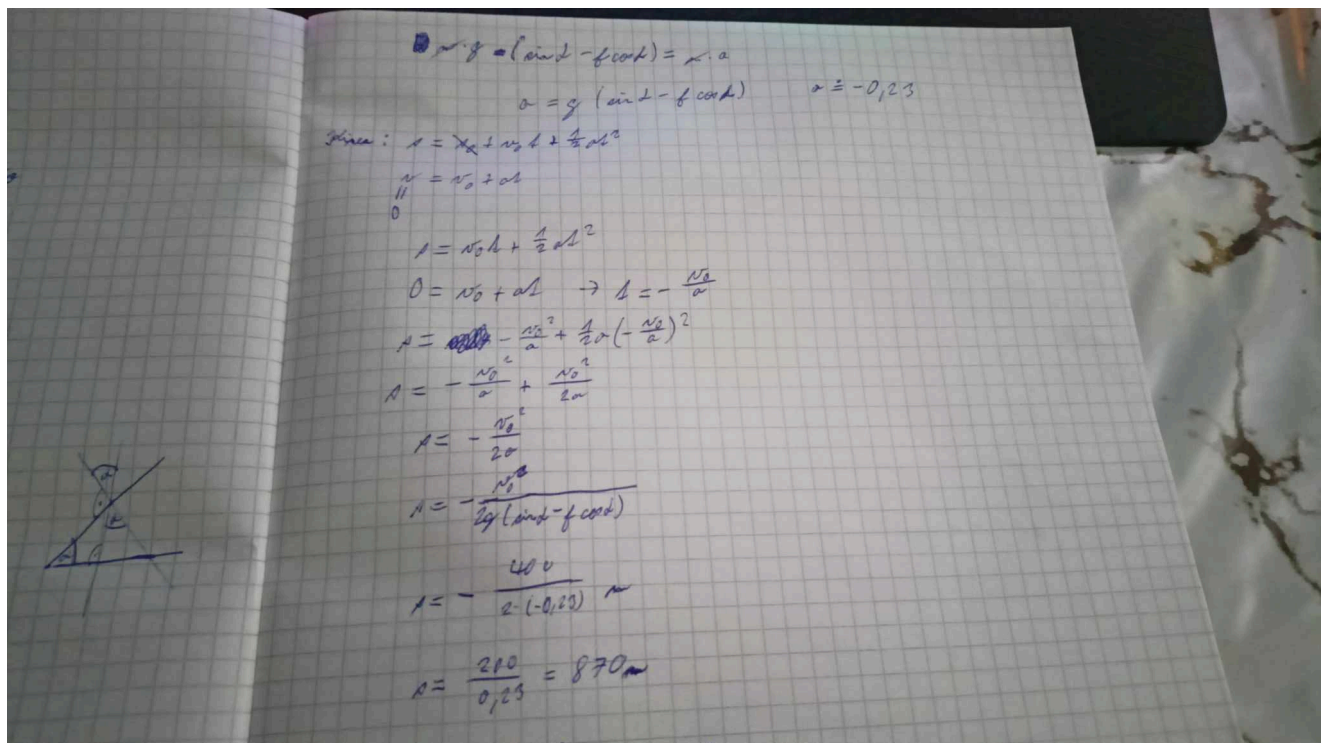 m·g·(sin α - f cos α) = m·a
a = g (sin α - f cos α) a ≐ -0,23
s = s₀ + v₀ t + ½ at²
v = v₀ + at
||
0
s = v₀t + ½ at²
0 = v₀ + at → t = - v₀/a
s = - v₀²/a + ½ a (- v₀/a)²
s = - v₀²/a + v₀²/2a
s = - v₀²/2a
s = - v₀²/2g (sin α - f cos α)
s = - 400/2·(-0,23) m
s = 200/0,23 = 870m
α
α
α